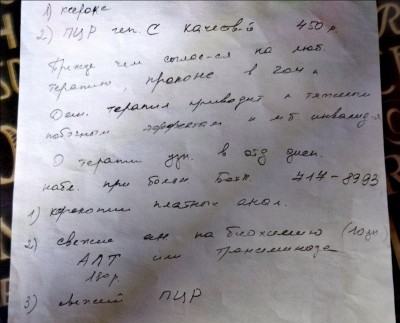 1) ксерокс
2) ПЦР геп. С качеств-й 450 р.
Прежде чем соглас-ся на люб.
терапию, проконс в
терапия приводит к тяжелым
побочным эффектам и мб инвалид-я
О терапии узн. в отд дисп.
набл. при болан Ботк. 717-8993
1) ксерокопии платных анал.
2) свежие ан на биохимию (10дн)
АЛТ или трансаминаза
180р
3) свежий ПЦР